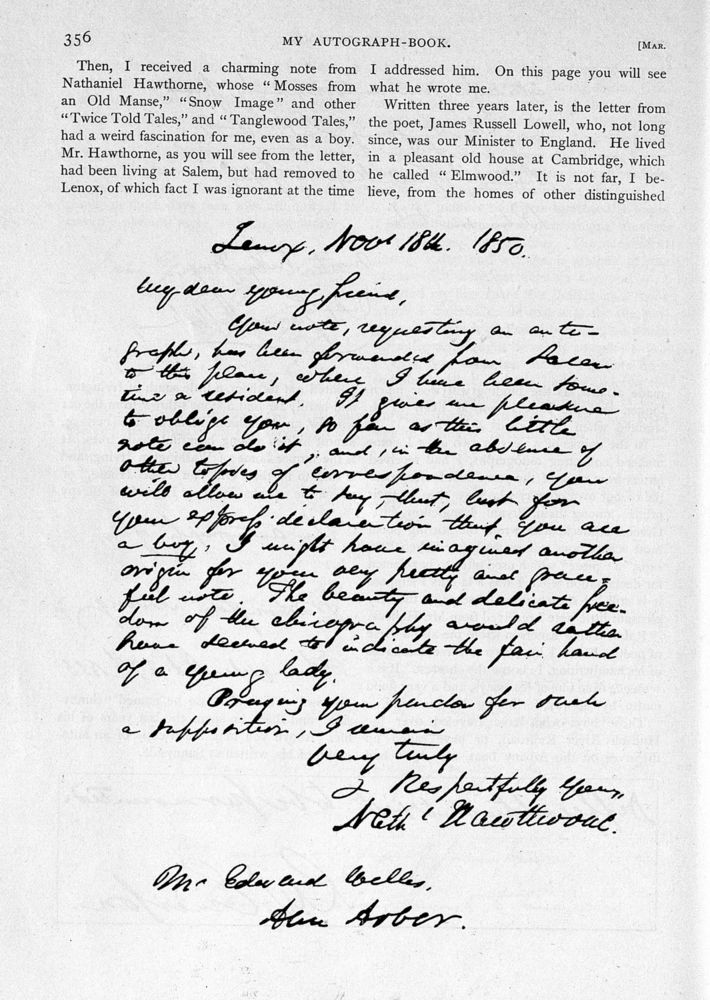 356
MY AUTOGRAPH-BOOK.
[MAR.
Then, I received a charming note from
Nathaniel Hawthorne, whose “Mosses from
an Old Manse,” “Snow Image” and other
“Twice Told Tales,” and “Tanglewood Tales,”
had a weird fascination for me, even as a boy.
Mr. Hawthorne, as you will see from the letter,
had been living at Salem, but had removed to
Lenox, of which fact I was ignorant at the time
I addressed him. On this page you will see
what he wrote me.
Written three years later, is the letter from
the poet, James Russell Lowell, who, not long
since, was our Minister to England. He lived
in a pleasant old house at Cambridge, which
he called “Elmwood.” It is not far, I be-
lieve, from the homes of other distinguished
Lenox, Novr 18th. 1850.
My dear young friend,
Your note, requesting an auto-
graph, has been forwarded from Salem
to this place, where I have been some-
time a resident. It gives me pleasure
to oblige you, so far as this little
note can do it; and, in the absence of
other topics of correspondence, you
will allow me to say that, but for
your express declaration that you are
a boy, I might have imagined another
origin for your very pretty and grace-
ful note. The beauty and delicate free-
dom of the chirography would rather
have seemed to indicate the fair hand
of a young lady.
Praying your pardon for such
a supposition, I remain
very truly
& Respectfully Yours,
Nathl Hawthorne.
Mr Edward Welles,
Ann Arbor.